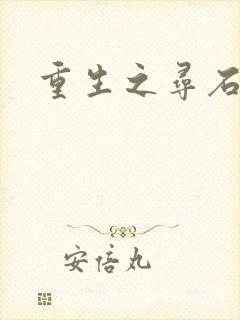 重生之寻石
安倍丸